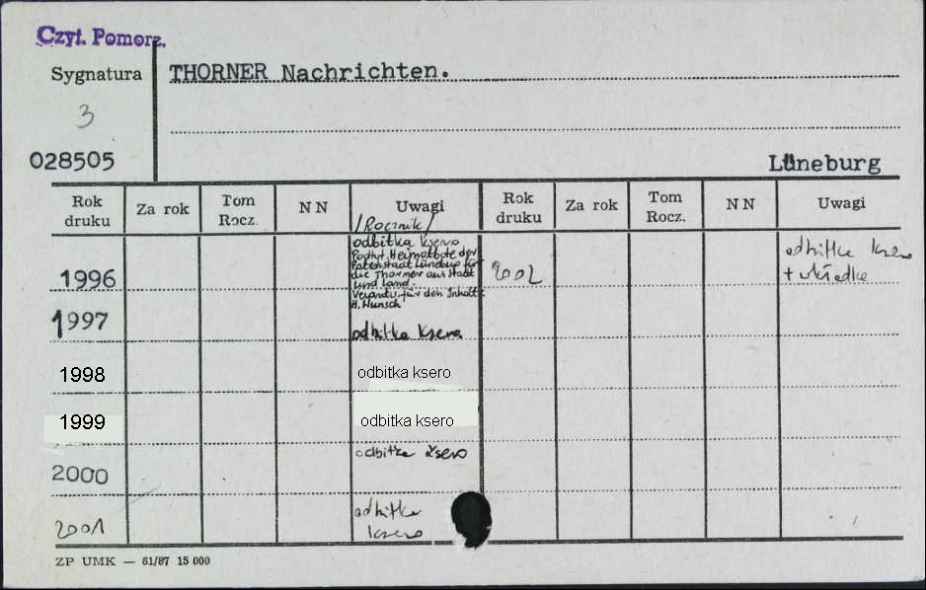 Czyt. Pomorz.
Sygnatura
THORNER Nachrichten.
3
028505
Lüneburg
Rok druku
Za rok
Tom Rocz.
NN
Uwagi
/Rocznik/
Rok druku
Za rok
Tom Rocz.
NN
Uwagi
1996
odbitka ksero
Podtyt. Heimatbote der
Patenstadt Lüneburg für
die Thorner aus Stadt
und Land.
Verantw. für den Inhalt:
H. Hunsch
2002
odbitka ksero
+ wkładka
1997
odbitka ksero
1998
odbitka ksero
1999
odbitka ksero
2000
odbitka ksero
2001
odbitka
ksero
ZP UMK — 61/87 15 000